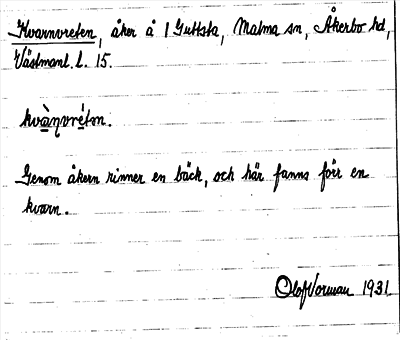 Kvarnvreten, åker å 1 Guttsta, Malma sn, Åkerbo hd,
Västmanl. l. 15.
Genom åkern rinner en bäck, och här fanns förr en
kvarn.
Olof Vorman 1931